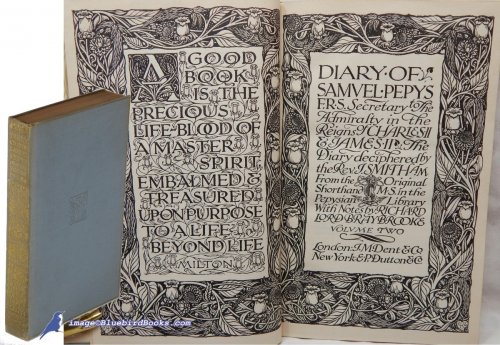 A GOOD
BOOK
IS THE
PRECIOUS
LIFE-BLOOD OF
A MASTER
SPIRIT,
EMBALMED &
TREASURED
UPON PURPOSE
TO A LIFE
BEYOND LIFE
MILTON
DIARY·OF
SAMVEL·PEPYS
F.R.S. Secretary to the
Admiralty in the
Reigns of CHARLES II
& JAMES II·The
Diary deciphered by
the Rev. J. SMITH A.M.
From the Original
Shorthand M.S. in the
Pepysian Library
With Notes by RICHARD
LORD BRAYBROOKE
VOLVME TWO
London: J.M. Dent & Co
New York: E.P. Dutton & Co
image©BluebirdBooks.com